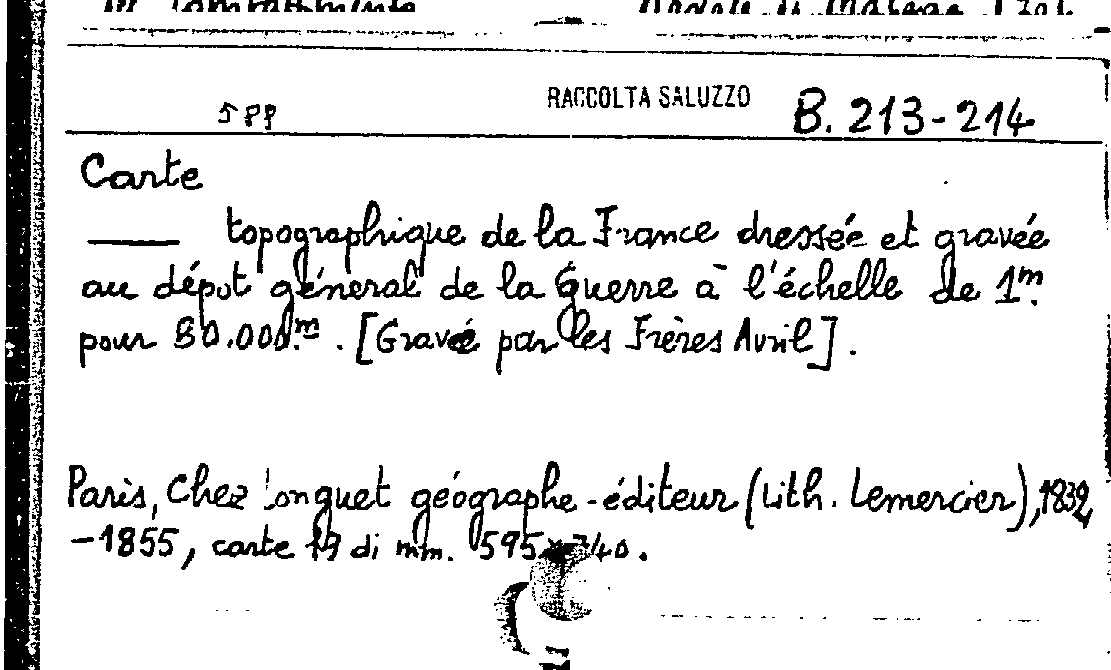 RACCOLTA SALUZZO B. 213-214
Carte
topographique de la France dressée et gravée
au dépot géneral de la Guerre à l'échelle de 1m.
pour 80.000.m . [Gravée par les Frères Avril] .
Paris, Chez Longuet géographe-éditeur (Lith. Lemercier), 1832
-1855, carte di mm. 595x740.